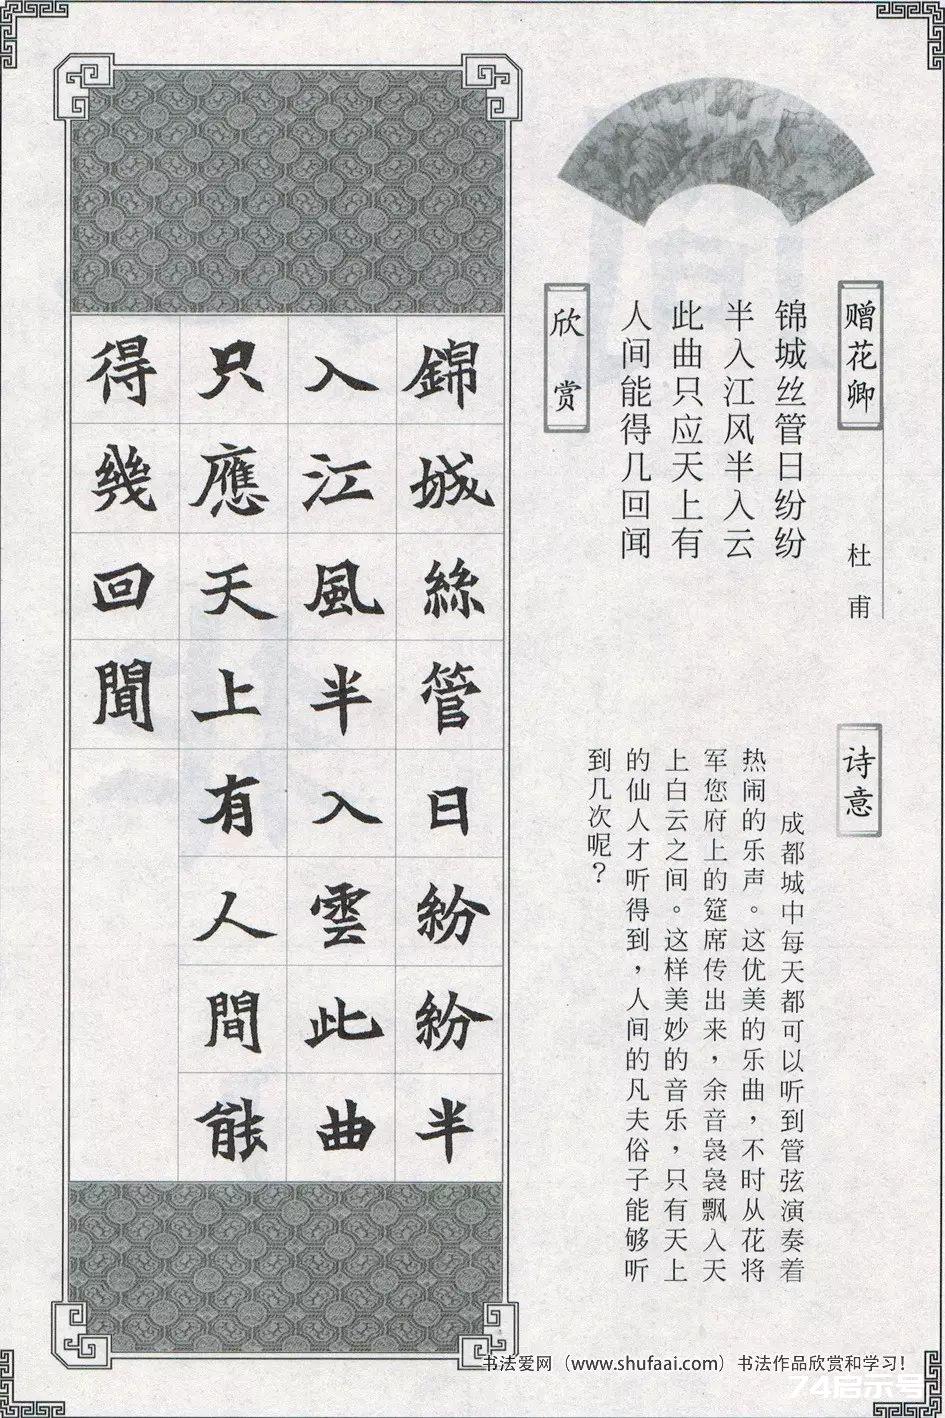 赠花卿
杜甫
锦城丝管日纷纷
半入江风半入云
此曲只应天上有
人间能得几回闻
欣赏
诗意
成都城中每天都可以听到管弦演奏着
热闹的乐声。这优美的乐曲，不时从花将
军您府上的筵席传出来，余音袅袅飘入天
上白云之间。这样美妙的音乐，只有天上
的仙人才听得到，人间的凡夫俗子能够听
到几次呢？
錦城絲管日紛紛半
入江風半入雲此曲
只應天上有人間能
得幾回聞
书法爱网（www.shufaai.com）书法作品欣赏和学习！
74启示号